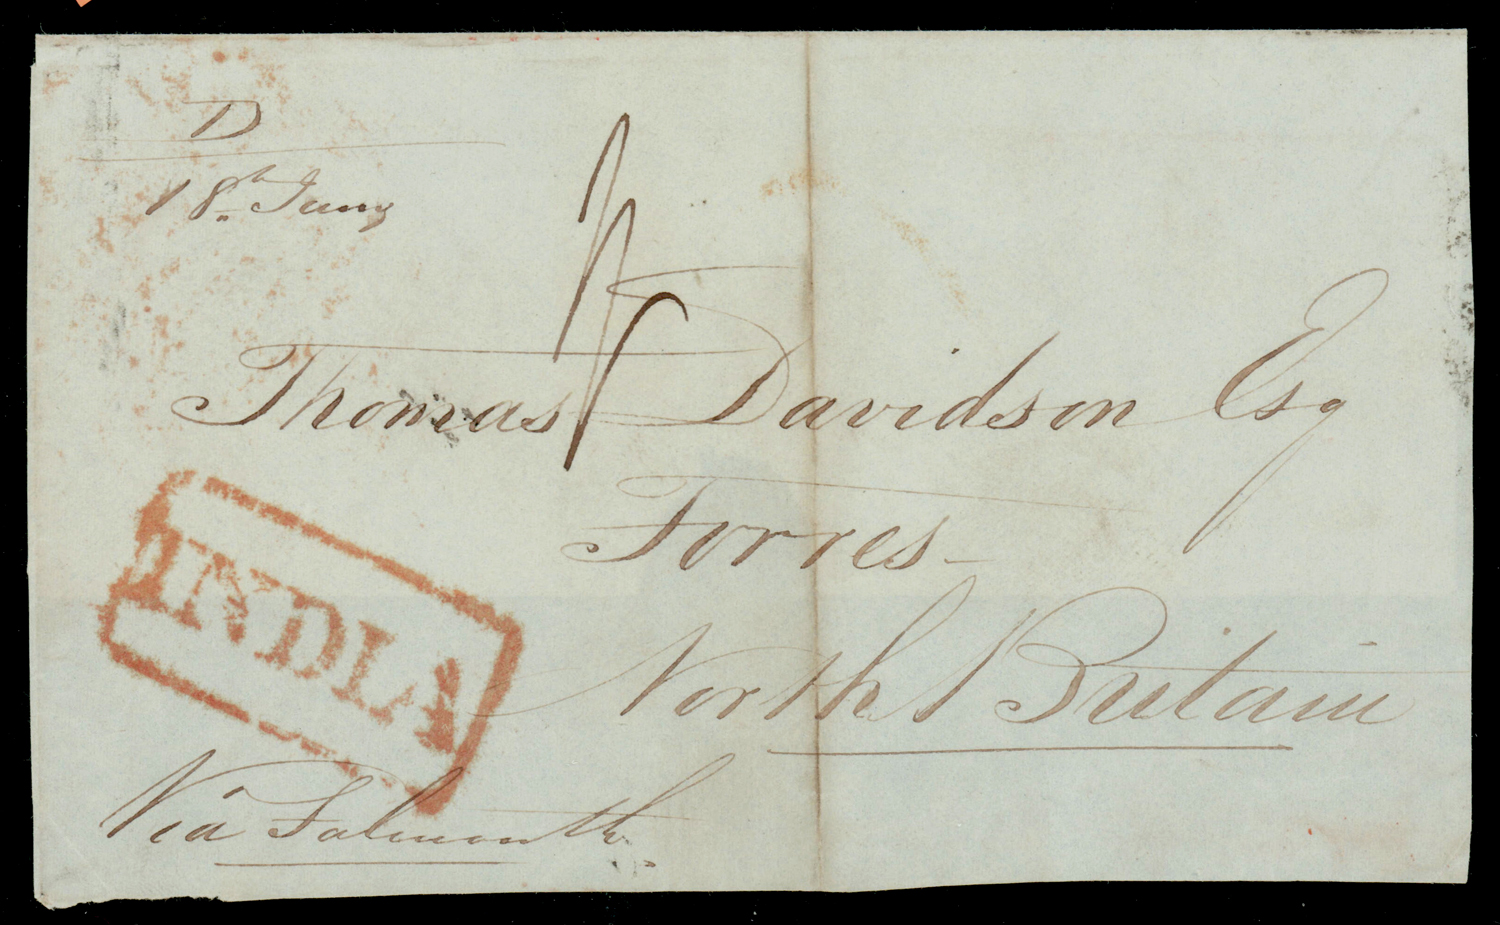 D
18th Jany
Thomas Davidson Esq
Forres
North Britain
INDIA
Via Falmouth